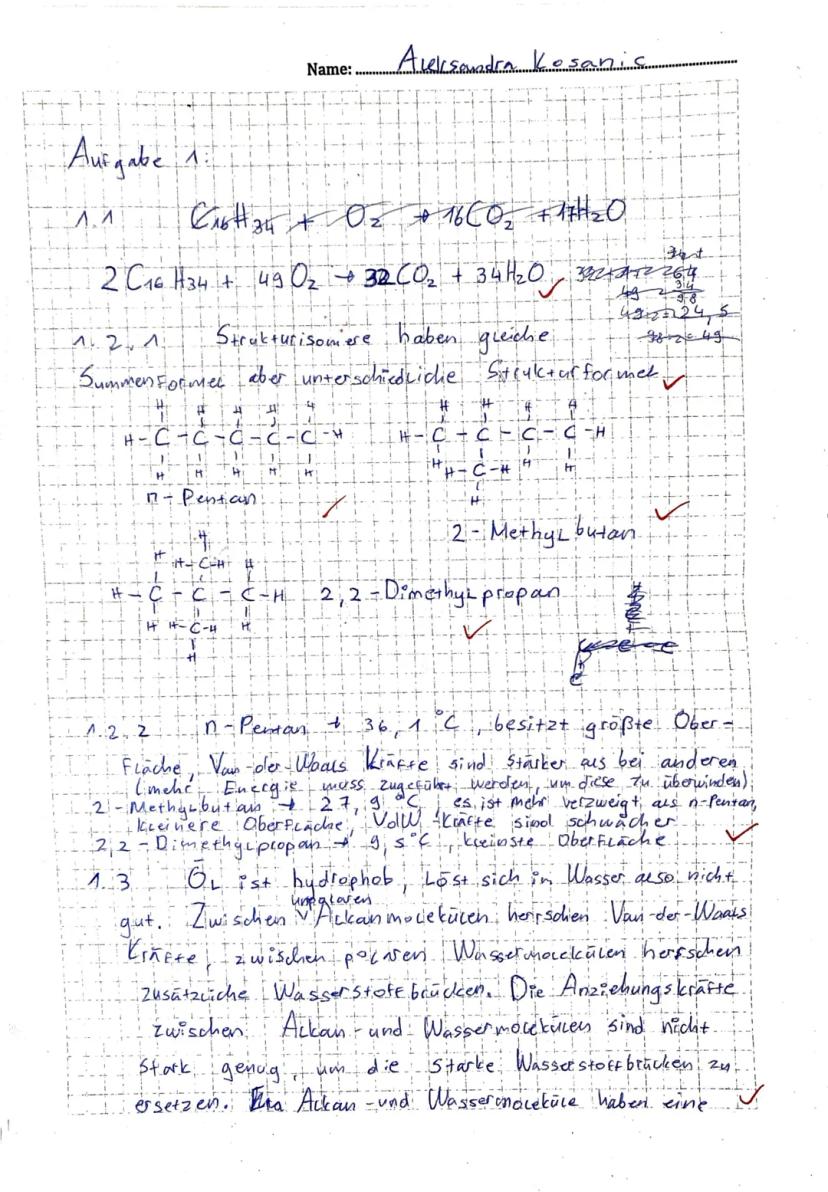 Name: Aleksandra Kosanic
Aufgabe 1:
1.1 C16H34 + O2 → 16CO2 + 17H2O
2 C16 H34 + 49 O2 → 32CO2 + 34H2O
1.2.1 Strukturisomere haben gleiche
Summenformel aber unterschiedliche Strukturformel
H H H H H
H-C-C-C-C-C-H
H H H H H
n-Pentan
H H H H
H-C-C-C-C-H
H H-C-H H H
H
2-Methylbutan
H
H H-C-H H
H-C-C-C-H
H H-C-H H
H
2,2-Dimethylpropan
1.2.2 n-Pentan → 36,1 °C, besitzt größte Ober-
fläche, Van-der-Waals Kräfte sind stärker als bei anderen
(mehr Energie muss zugeführt werden, um diese zu überwinden)
2-Methylbutan → 27,9 °C, es ist mehr verzweigt als n-Pentan,
kleinere Oberfläche, VdW-Kräfte sind schwächer
2,2-Dimethylpropan → 9,5°C, kleinste Oberfläche
1.3 Öl ist hydrophob, löst sich in Wasser also nicht
gut. Zwischen unpolaren Alkanmolekülen herrschen Van-der-Waals
Kräfte, zwischen polaren Wassermolekülen herrschen
zusätzliche Wasserstoffbrücken. Die Anziehungskräfte
zwischen Alkan-und Wassermolekülen sind nicht
stark genug, um die starke Wasserstoffbrücken zu
ersetzen. Alkan-und Wassermoleküle haben eine